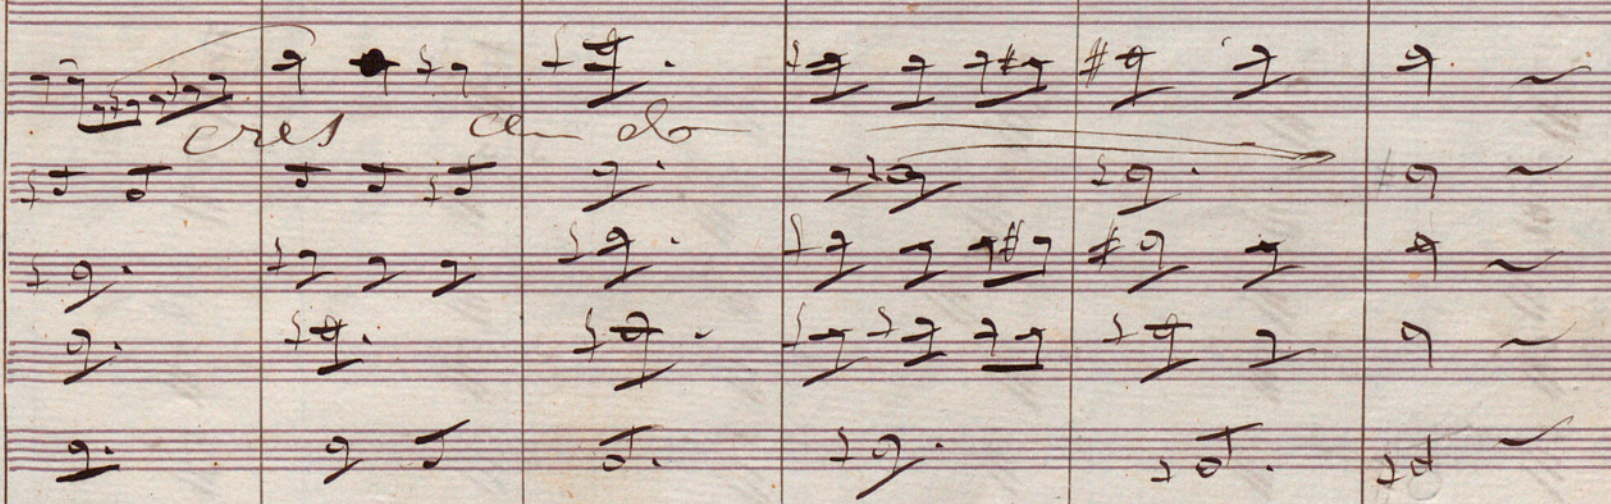 cres cen do